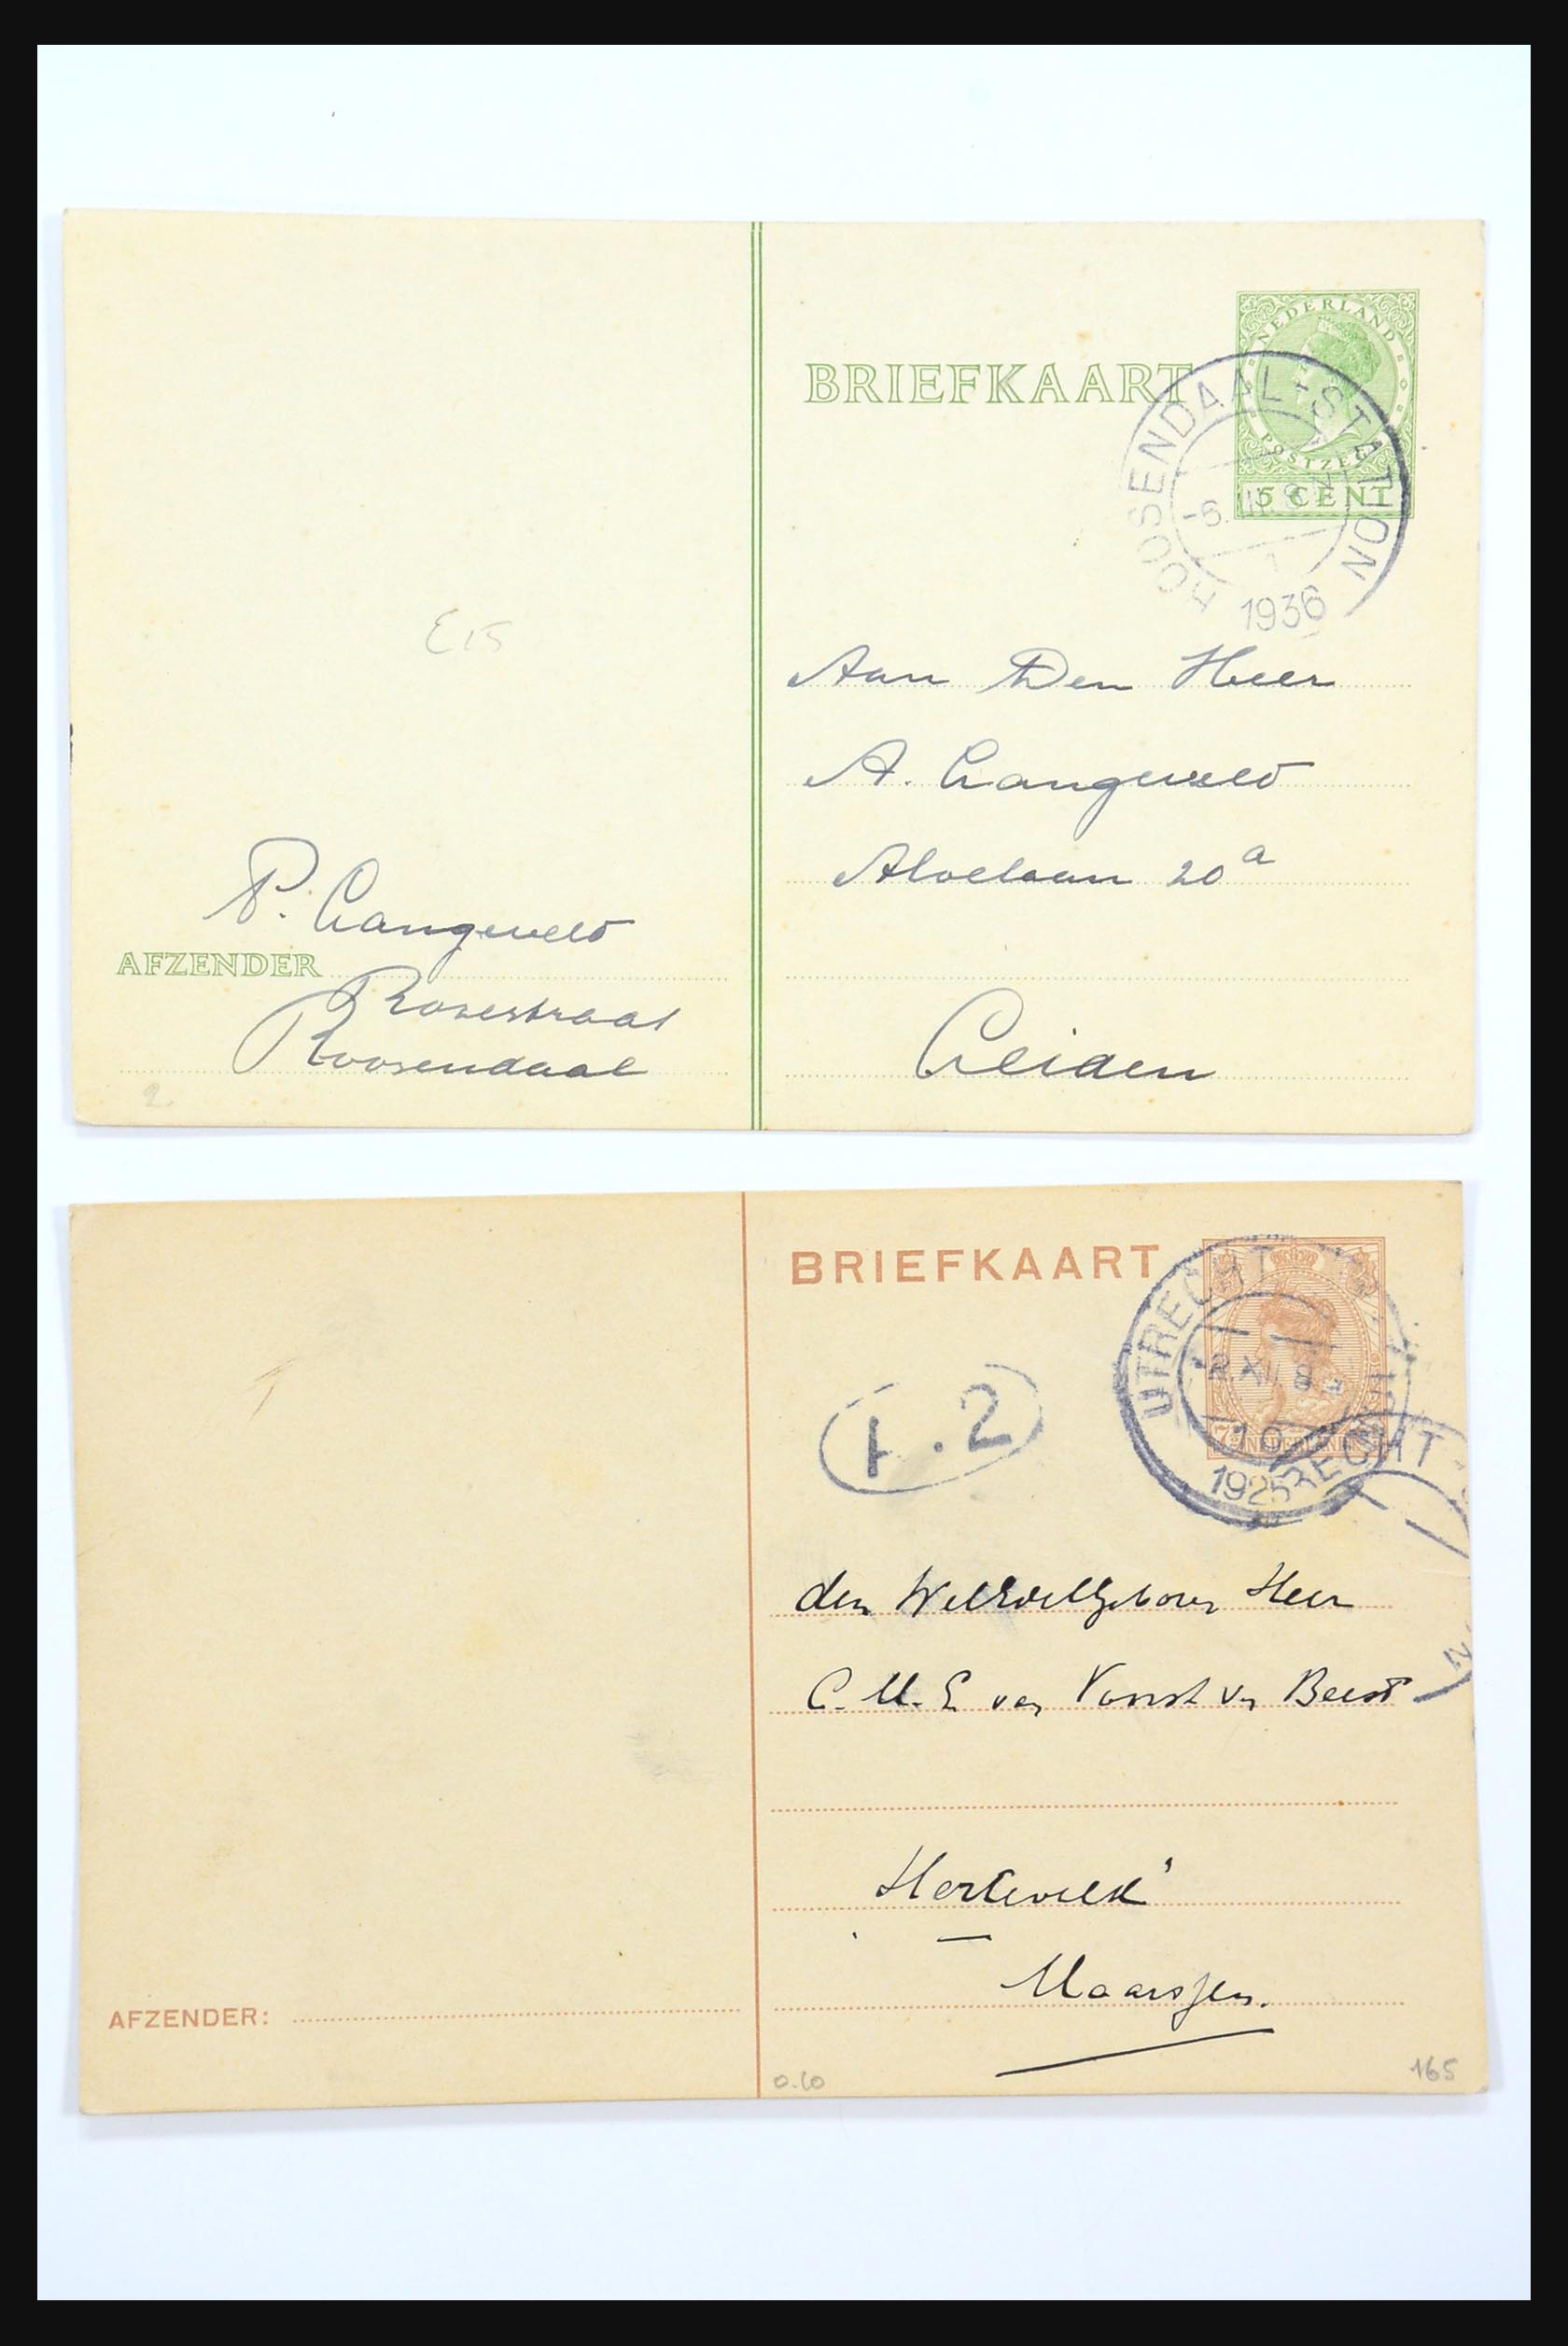 BRIEFKAART
NEDERLAND
POSTZEGEL
5 CENT
ROOSENDAAL-STATION
-6.
1
1936
E15
Aan Den Heer
A. Langeveld
Aloëlaan 20a
Leiden
P. Langeveld
AFZENDER
Rozestraat
Roosendaal
2
BRIEFKAART
NEDERLAND
UTRECHT
-2.XII.8
10
1925
RECHT
1
1.2
den WelEdelGeboren Heer
C. M. E van Vorst vn Beest
Maarssen.
AFZENDER:
0.60
165